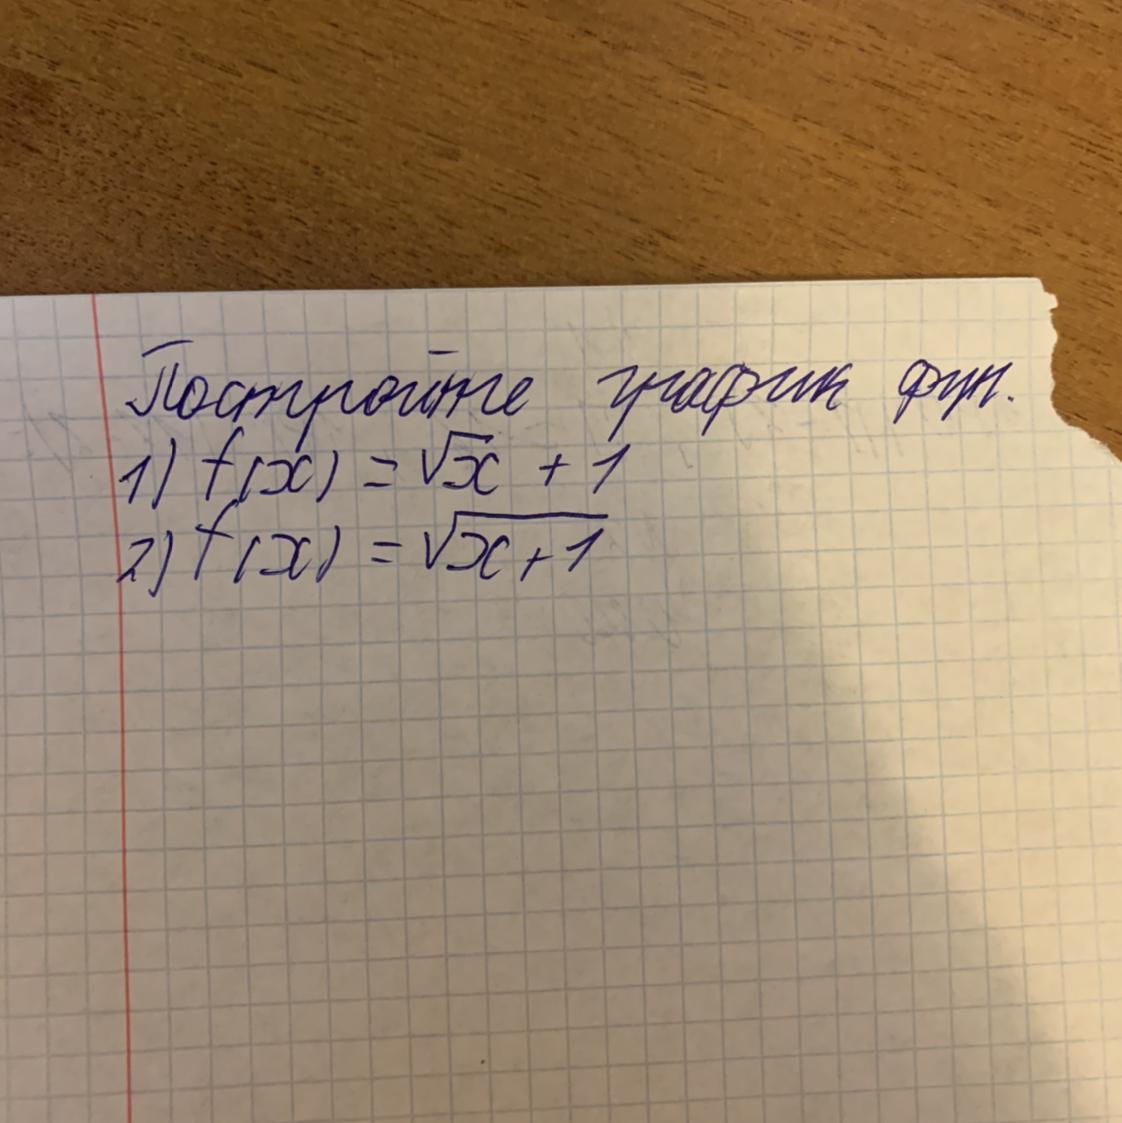 Постройте график фун.
1) f(x) = √x + 1
2) f(x) = √(x+1)